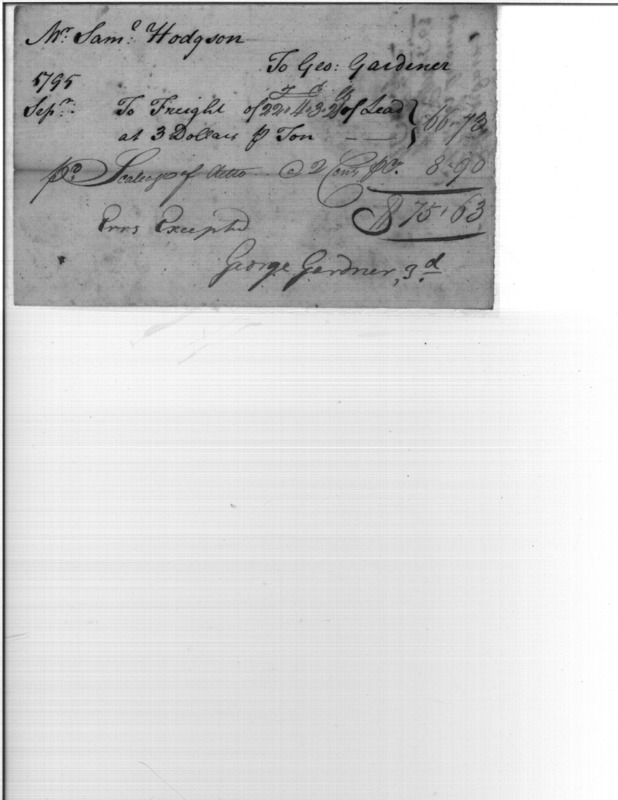 Mr. Saml. Hodgson
To Geo: Gardener
1795
Sepr. To Freight of 22,,4,,3,,2 of Lead } 66-73
at 3 Dollars ⅌ Ton
pd of ditto 2 8-90
$ 75,63
Errs Excepted
George Gardner, 3d